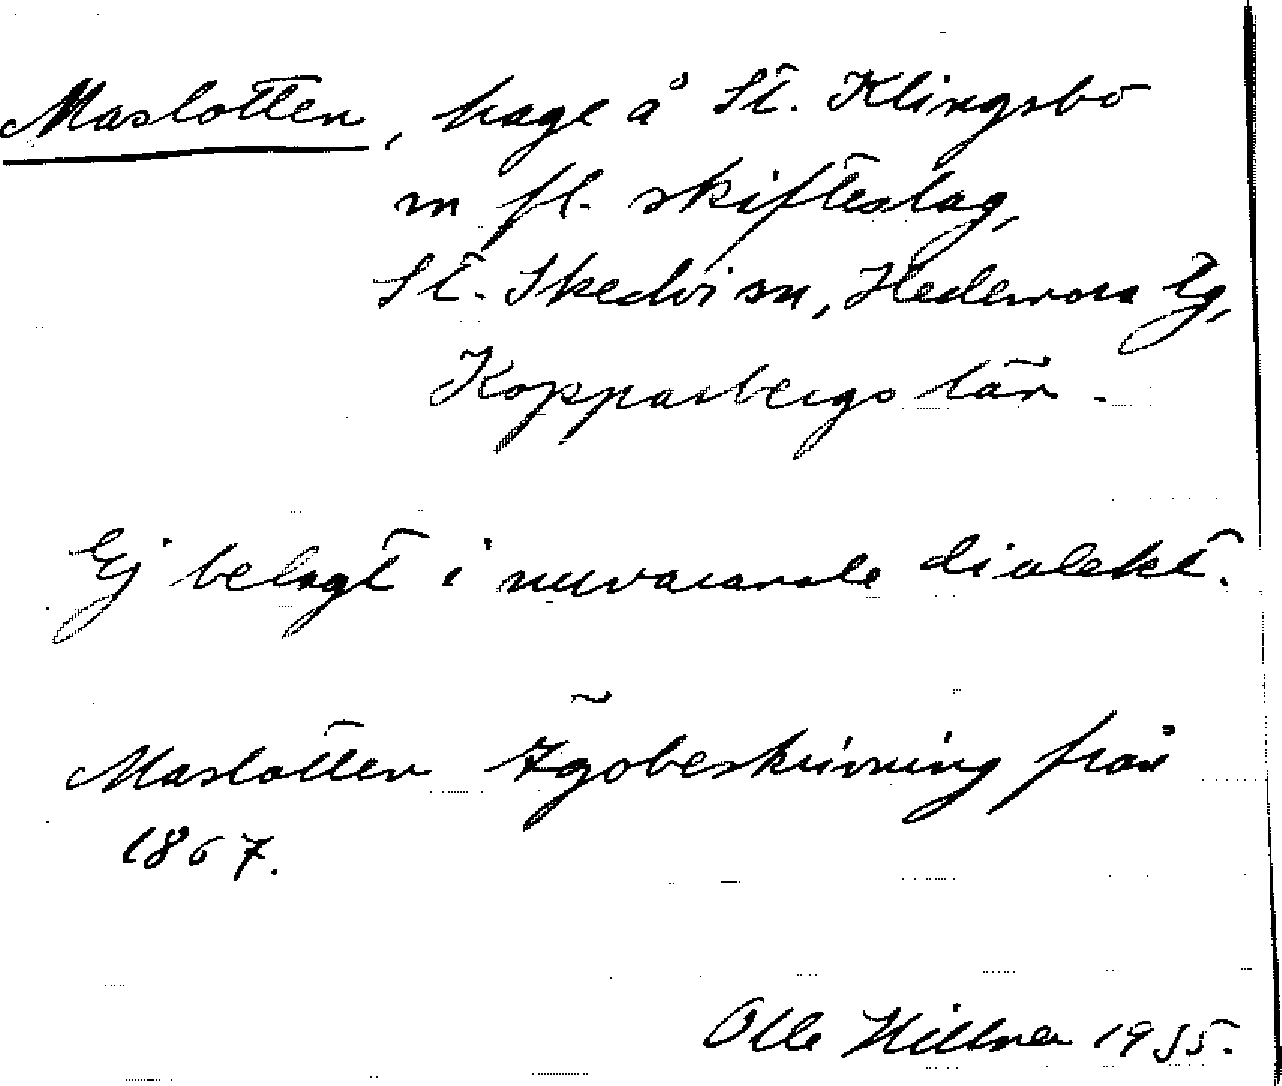 Maslotten, hage å St. Klingsbo
m fl. skifteslag,
St. Skedvi sn, Hedemora tg,
Kopparbergs län.
Ej belagt i nuvarande dialekt.
Maslotten Ägobeskrivning från
1867.
Olle Hillner 1935.